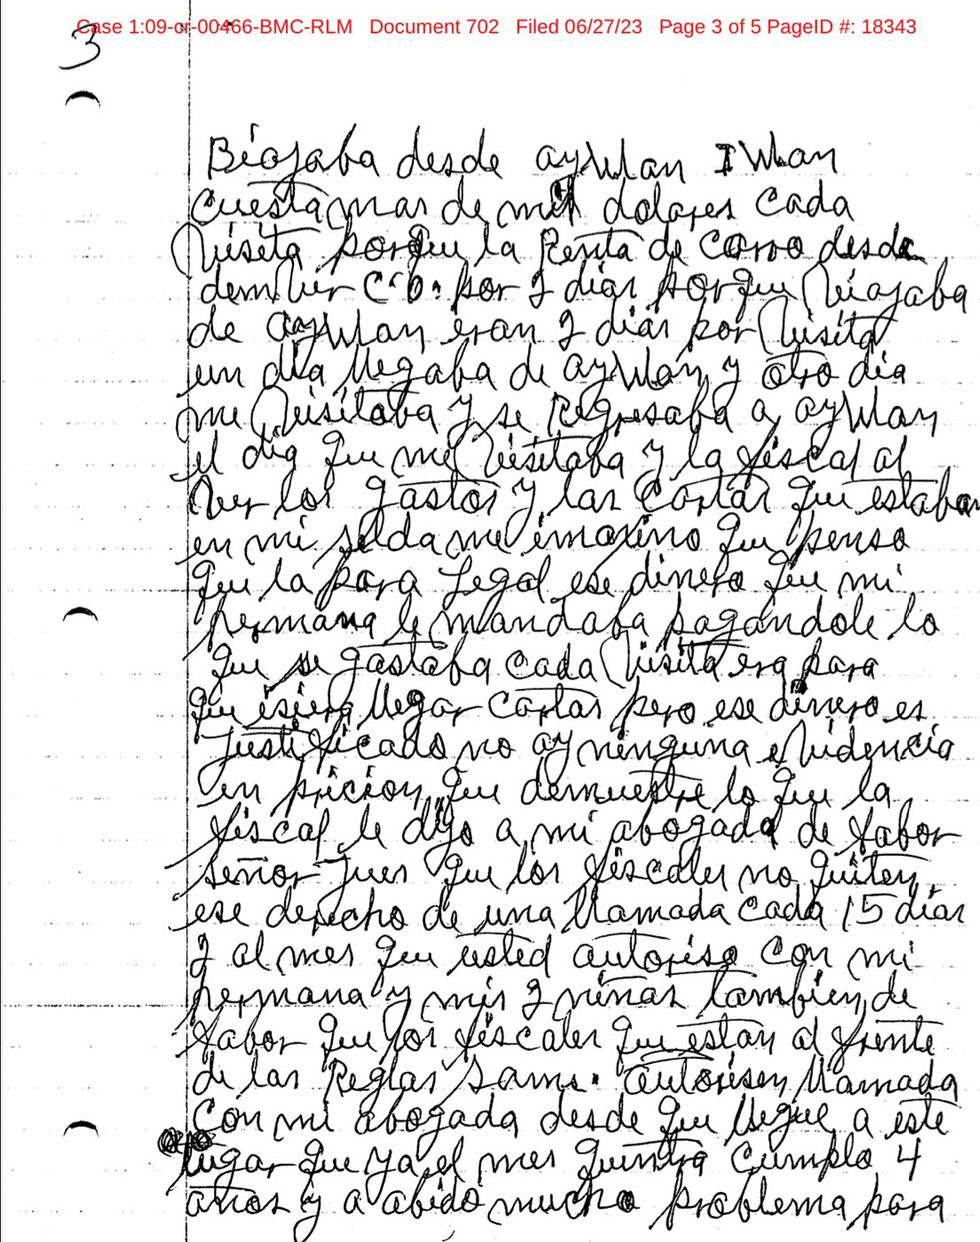 Case 1:09-cr-00466-BMC-RLM Document 702 Filed 06/27/23 Page 3 of 5 PageID #: 18343
3
Biajaba desde aywan I wan
cuesta mas de mil dolares cada
Visita porque la Renta de Carro desde
demVer C.O. por 2 dias porque Viajaba
de aywan eran 2 dias por Visita
un dia llegaba de aywan y otro dia
me Visitaba y se Regresaba a aywan
el dia que me Visitaba y la fiscal al
Ver los gastos y las Cartas que estaban
en mi selda me imaxino que penso
que la para Legal ese dinero que mi
hermana le mandaba pagandole lo
que se gastaba cada Visita era para
que isiera llegar cartas pero ese dinero es
justificado no ay ninguna eVidencia
en pricion que demuestre lo que la
fiscal le dijo a mi abogada de fabor
señor jues que los fiscales no quiten
ese derecho de una llamada cada 15 dias
2 al mes que usted autoriso con mi
hermana y mis 2 niñas tambien de
fabor que los fiscales que estan al frente
de las Reglas sams. autorisen llamada
Con mi abogada desde que llegue a este
lugar que ya el mes que entra Cumplo 4
años y a abido mucho problema para